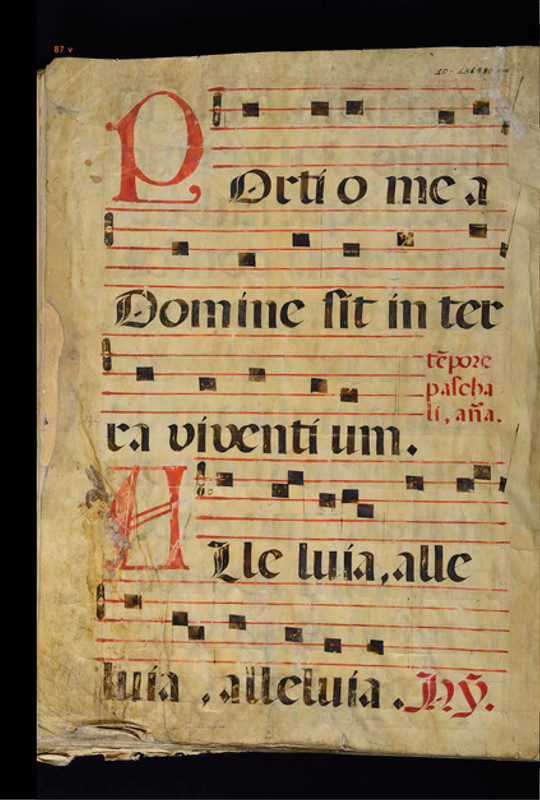 87 v
POrti o me a
Domine sit in ter
tēpore
pascha
li, aña.
ra viventi um.
ALle luia, alle
luia , alleluia . Hȳ.